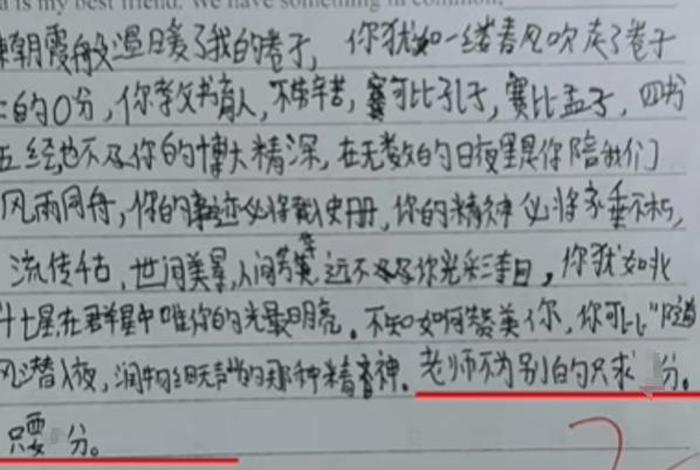 is my best friend. We have something in common,
朝霞般温暖了我的卷子, 你犹如一缕春风吹走了卷子
的0分, 你教书育人, 不怕辛苦, 赛可比孔子, 赛比孟子, 四书
五经也不及你的博大精深, 在无数的日夜里是你陪我们
风雨同舟, 你的事迹必将载史册, 你的精神必将永垂不朽,
流传千古, 世间美景, 人间芳华等远不及你光彩夺目, 你犹如北
斗七星在群星中唯你的光最明亮。不知如何赞美你, 你可比"随
风潜入夜, 润物细无声"的那种精神. 老师不为别的只求 分。
只要 分。